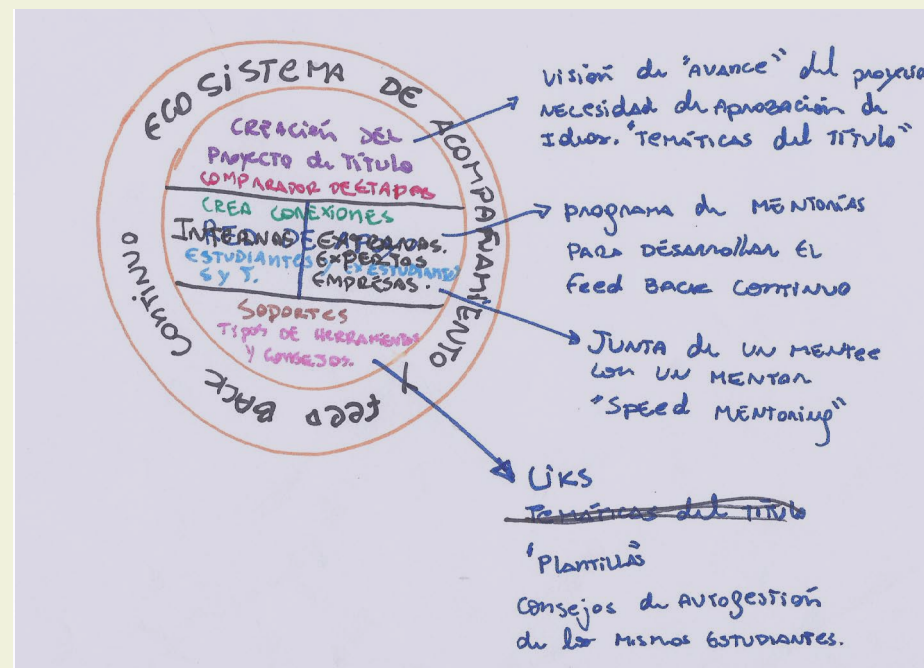 ECOSISTEMA DE ACOMPAÑAMIENTO Y FEED BACK CONTINUO
CREACIÓN DEL
PROYECTO de TÍTULO
COMPARADOR DE ETAPAS
CREA CONEXIONES
INTERNAS EXTERNAS.
EXPERTOS
ESTUDIANTES / EX ESTUDIANTES
5 y T. EMPRESAS.
SOPORTES
TIPOS DE HERRAMIENTAS
Y CONSEJOS.
Visión de "AVANCE" del proyecto
NECESIDAD de APROBACIÓN de
Ideas. "TEMÁTICAS del TÍTULO"
PROGRAMA de MENTORÍAS
PARA DESARROLLAR EL
Feed BACK CONTINUO
JUNTA de UN MENTEE
con UN MENTOR
"SPEED MENTORING"
LiKS
TEMÁTICAS del TÍTULO
"Plantillas"
Consejos de AUTOGESTIÓN
de los MISMOS ESTUDIANTES.